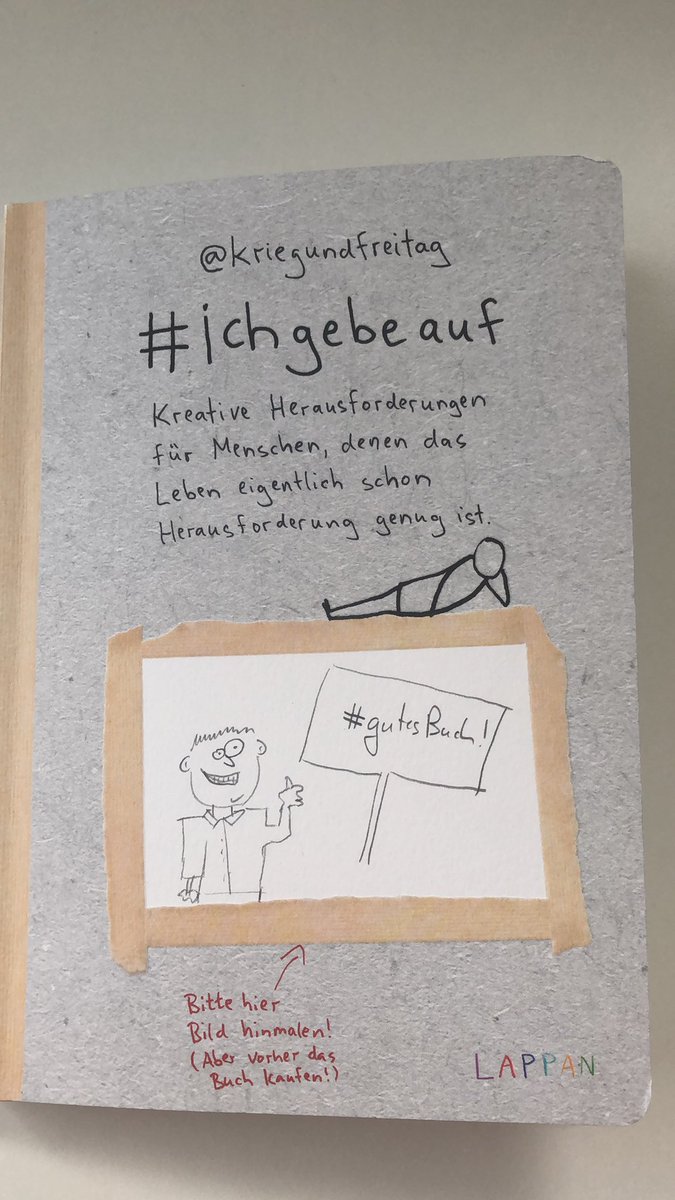 @kriegundfreitag
#ichgebeauf
Kreative Herausforderungen
für Menschen, denen das
Leben eigentlich schon
Herausforderung genug ist.
#gutesBuch!
Bitte hier
Bild hinmalen!
(Aber vorher das
Buch kaufen!)
LAPPAN